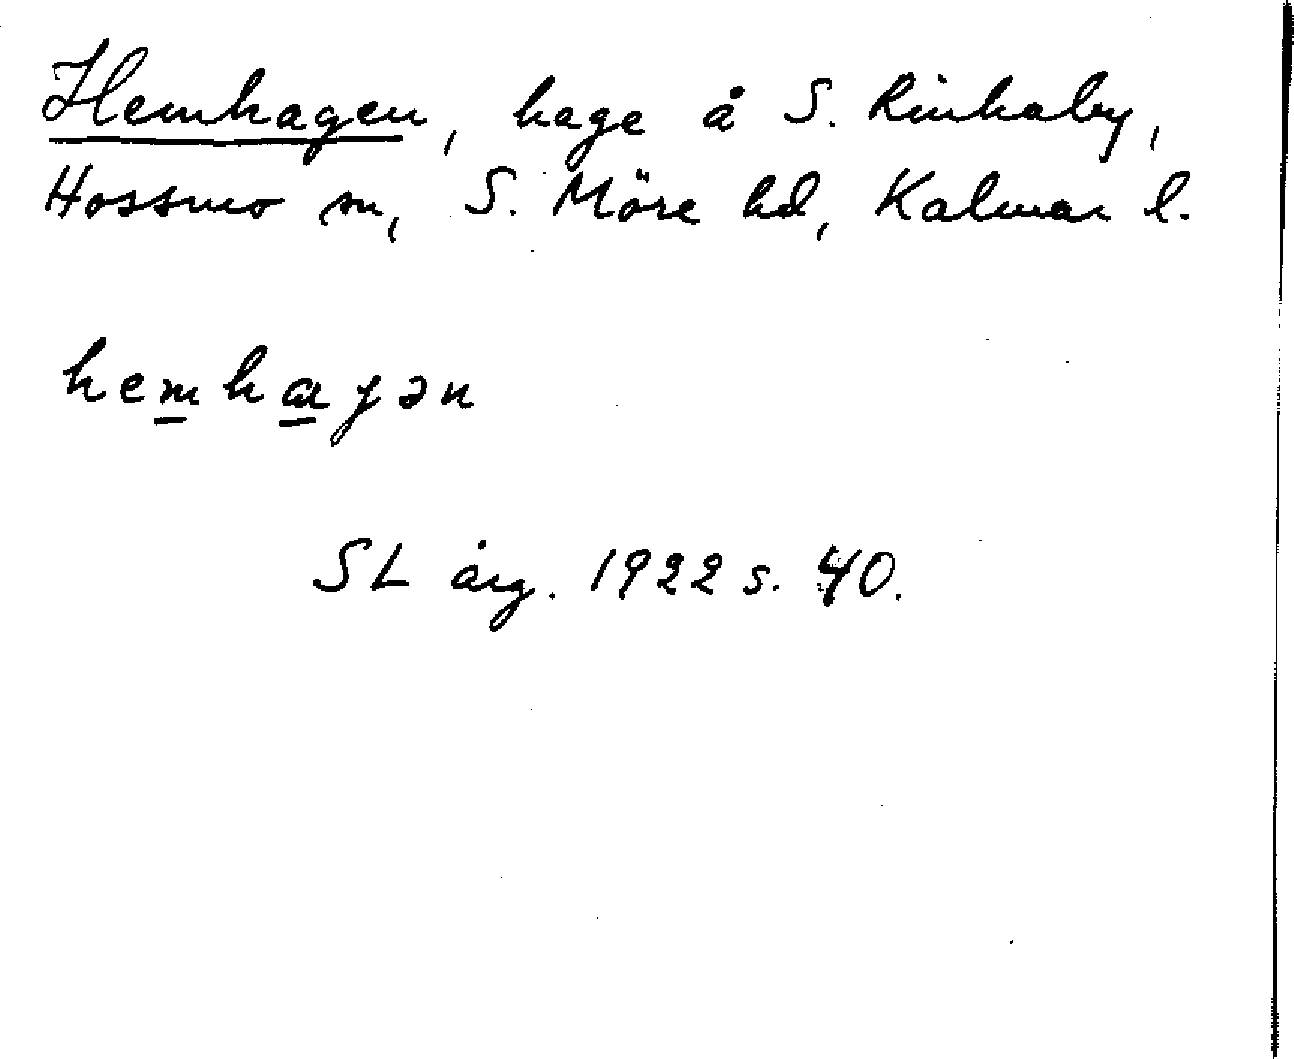 Hemhagen, hage å S. Rinkaby,
Hossmo sn, S. Möre hd, Kalmar l.
hemhaɡən
SL årg. 1922 s. 40.